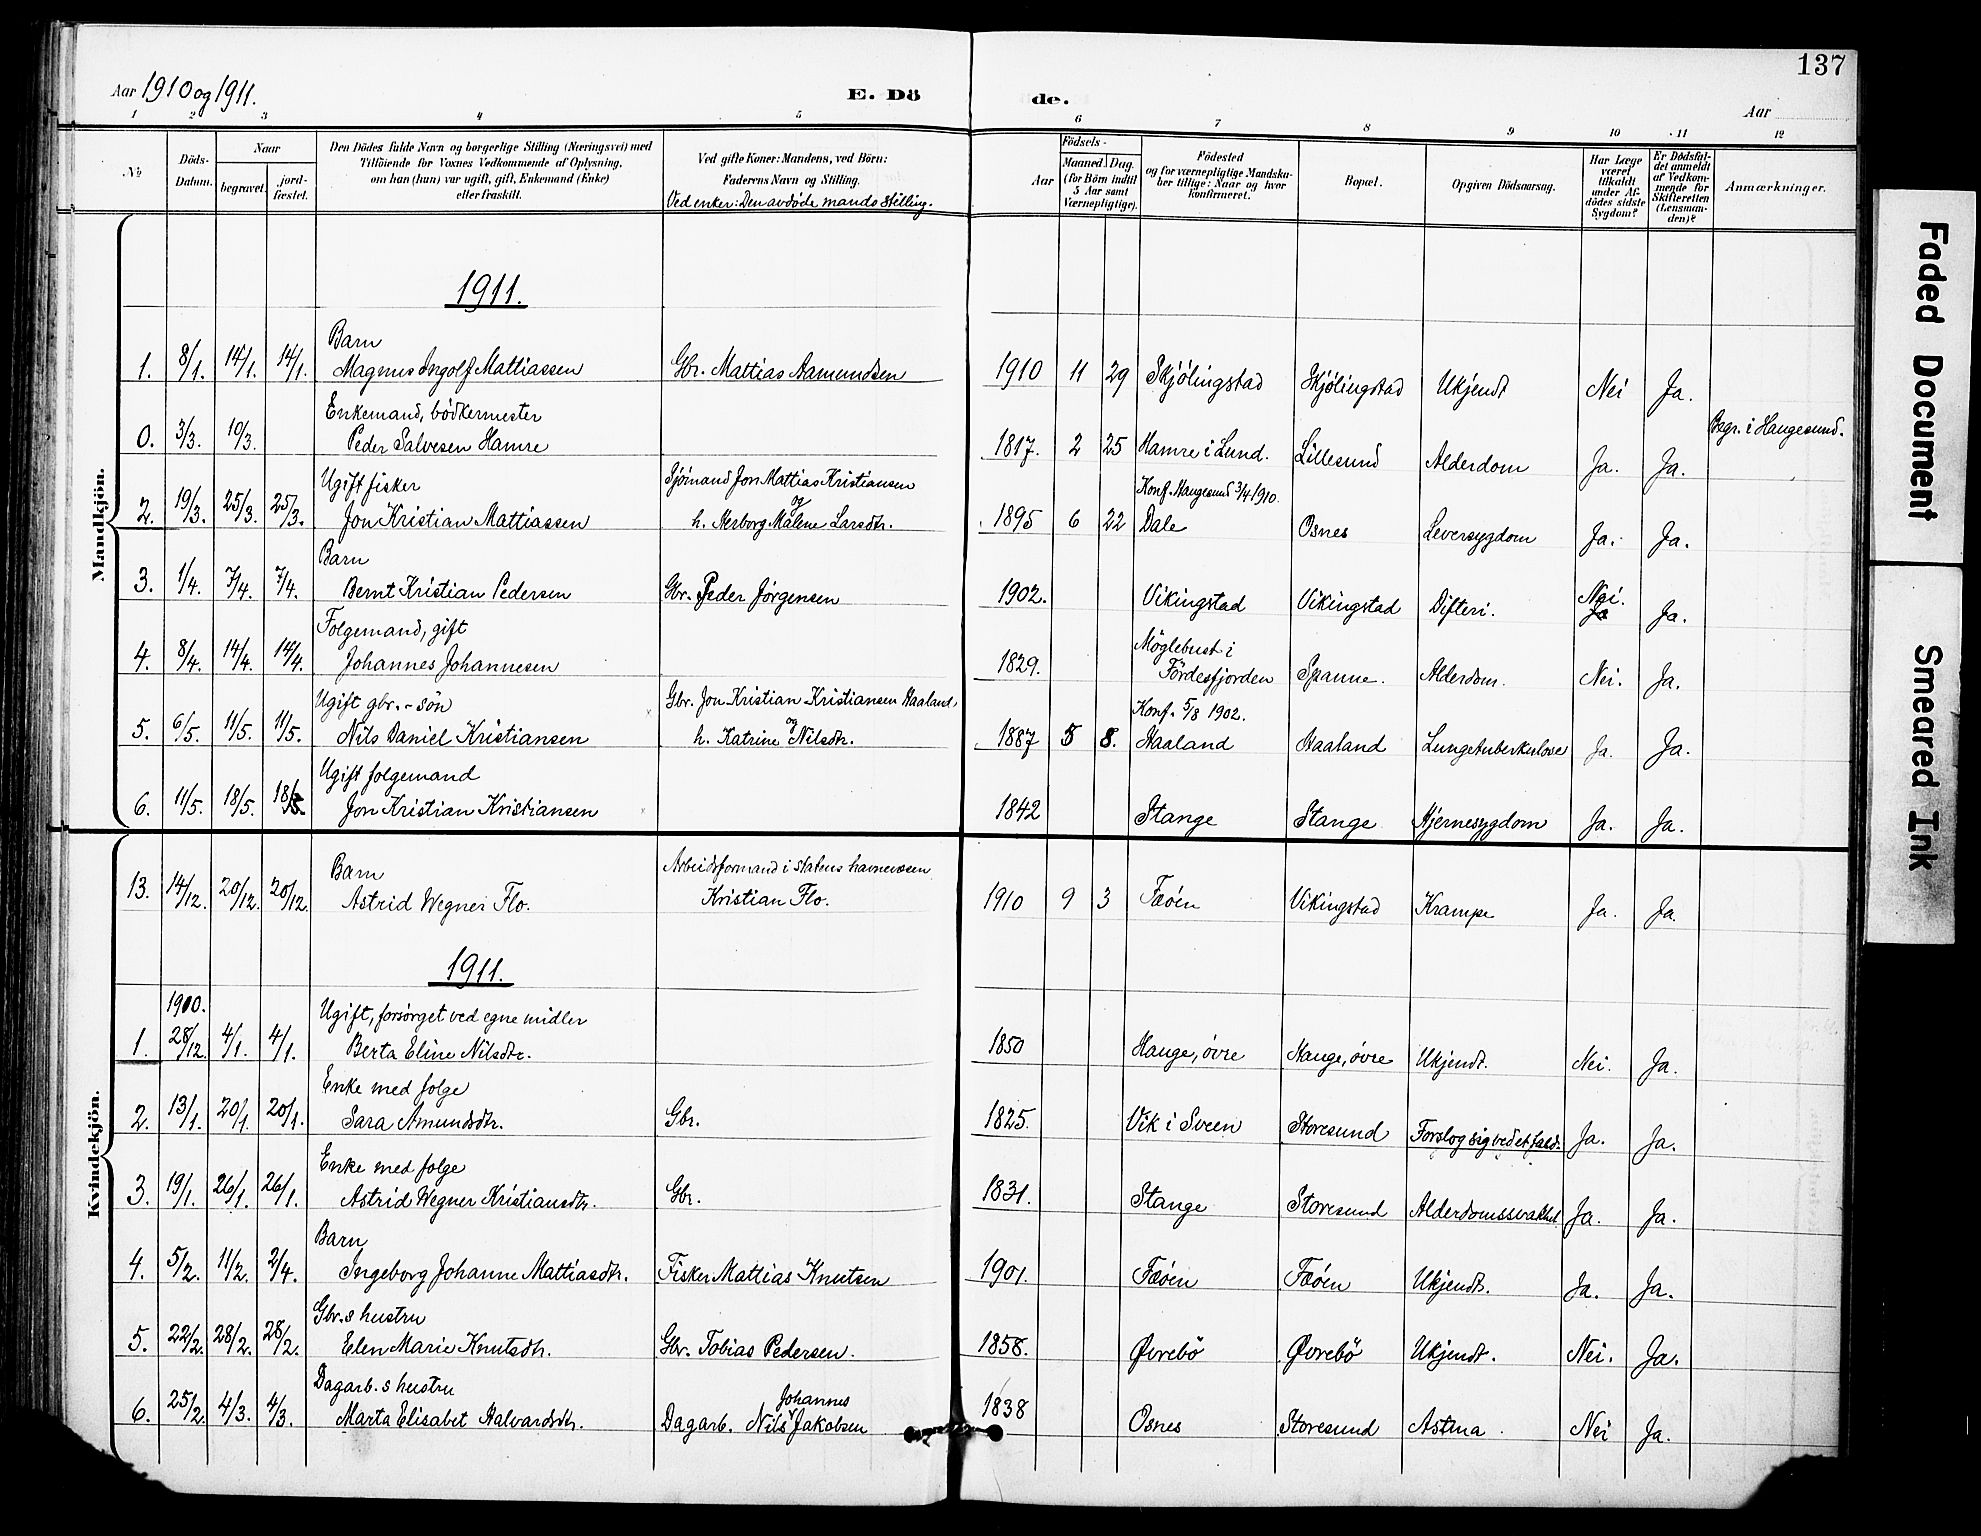 137
Aar 1910 og 1911.
E. Dö de.
Aar
1 2 3 4 5 6 7 8 9 10 11 12
№
Döds-Datum.
Naar
begravet.
jord-fæstet.
Den Dödes fulde Navn og borgerlige Stilling (Næringsvei) med
Tilföiende for Voxnes Vedkommende af Oplysning,
om han (hun) var ugift, gift, Enkemand (Enke)
eller fraskilt.
Ved gifte Koner: Mandens, ved Börn:
Faderens Navn og Stilling.
Ved enker: Den avdøde mands stilling.
Födsels-
Aar
Maaned Dag.
(for Börn indtil
5 Aar samt
Værnepligtige).
Födested
og for værnepligtige Mandska-
ber tillige: Naar og hvor
konfirmeret.
Bopæl.
Opgiven Dödsaarsag.
Har Læge
været
tilkaldt
under Af-
dödes sidste
Sygdom?
Er Dödsfal-
det anmeldt
af Vedkom-
mende for
Skifteretten
(Lensman-
den)?
Anmærkninger.
Mandkjön.
1911.
Barn
1. 8/1. 14/1. 14/1. Magnus Ingolf Mattiassen Gbr. Mattias Aamundsen 1910 11 29 Skjölingstad Skjölingstad Ukjendt Nei Ja.
Enkemand, bödkermester
0. 3/3. 10/3. Peder Salvesen Hamre 1817. 2 25 Hamre i Lund. Lillesund Alderdom Ja. Ja. Begr. i Haugesund.
Ugift fisker Sjömand Jon Mattias Kristiansen Konf. Haugesund 3/4 1910.
og
2. 19/3. 25/3. 25/3. Jon Kristian Mattiassen h. Herborg Malene Larsdtr. 1895 6 22 Dale Osnes Leversygdom Ja. Ja.
Barn
3. 1/4. 7/4. 7/4. Bernt Kristian Pedersen Gbr. Peder Jörgensen 1902. Vikingstad Vikingstad Difteri. Nei. Ja Ja.
Folgemand, gift Möglebust i
4. 8/4. 14/4. 14/4. Johannes Johannesen 1829. Fördesfjorden Spanne. Alderdom. Nei. Ja.
Ugift gbr.-sön Gbr. Jon Kristian Kristiansen Haaland, Konf. 5/8 1902.
og
5. 6/5. 11/5. 11/5. Nils Daniel Kristiansen h. Katrine Nilsdtr. 1887 5 8. Haaland Haaland Lungetuberkulose Ja. Ja.
Ugift folgemand
6. 11/5. 18/5. 18/5. Jon Kristian Kristiansen 1842 Stange Stange Hjernesygdom Ja. Ja.
Kvindekjön.
Barn Arbeidsformand i statens havnevæsen
13. 14/12. 20/12. 20/12. Astrid Wegner Flo. Kristian Flo. 1910 9 3 Fæöen Vikingstad Krampe Ja. Ja.
1911.
1910. Ugift, forsörget ved egne midler
1. 28/12. 4/1. 4/1. Berta Eline Nilsdtr. 1850 Hauge, övre Hauge, övre Ukjendt. Nei. Ja.
Enke med folge
2. 13/1. 20/1. 20/1. Sara Amundsdtr. Gbr. 1825. Vik i Sveen Storesund Forslog sig ved et fald. Ja. Ja.
Enke med folge
3. 19/1. 26/1. 26/1. Astrid Wegner Kristiansdtr. Gbr. 1831. Stange Storesund Alderdomssvakhet Ja. Ja.
Barn
4. 5/2. 11/2. 2/4. Ingeborg Johanne Mattiasdtr. Fisker Mattias Knutsen 1901. Fæöen Fæöen Ukjendt. Ja. Ja.
Gbr.s hustru
5. 22/2. 28/2. 28/2. Elen Marie Knutsdtr. Gbr. Tobias Pedersen. 1858. Øvrebö Øvrebö Ukjendt. Nei. Ja.
Dagarb.s hustru Johannes
6. 25/2. 4/3. 4/3. Marta Elisabet Halvardsdtr. Dagarb. Nils Jakobsen 1838 Osnes Storesund Astma. Nei Ja.
Faded Document
Smeared Ink